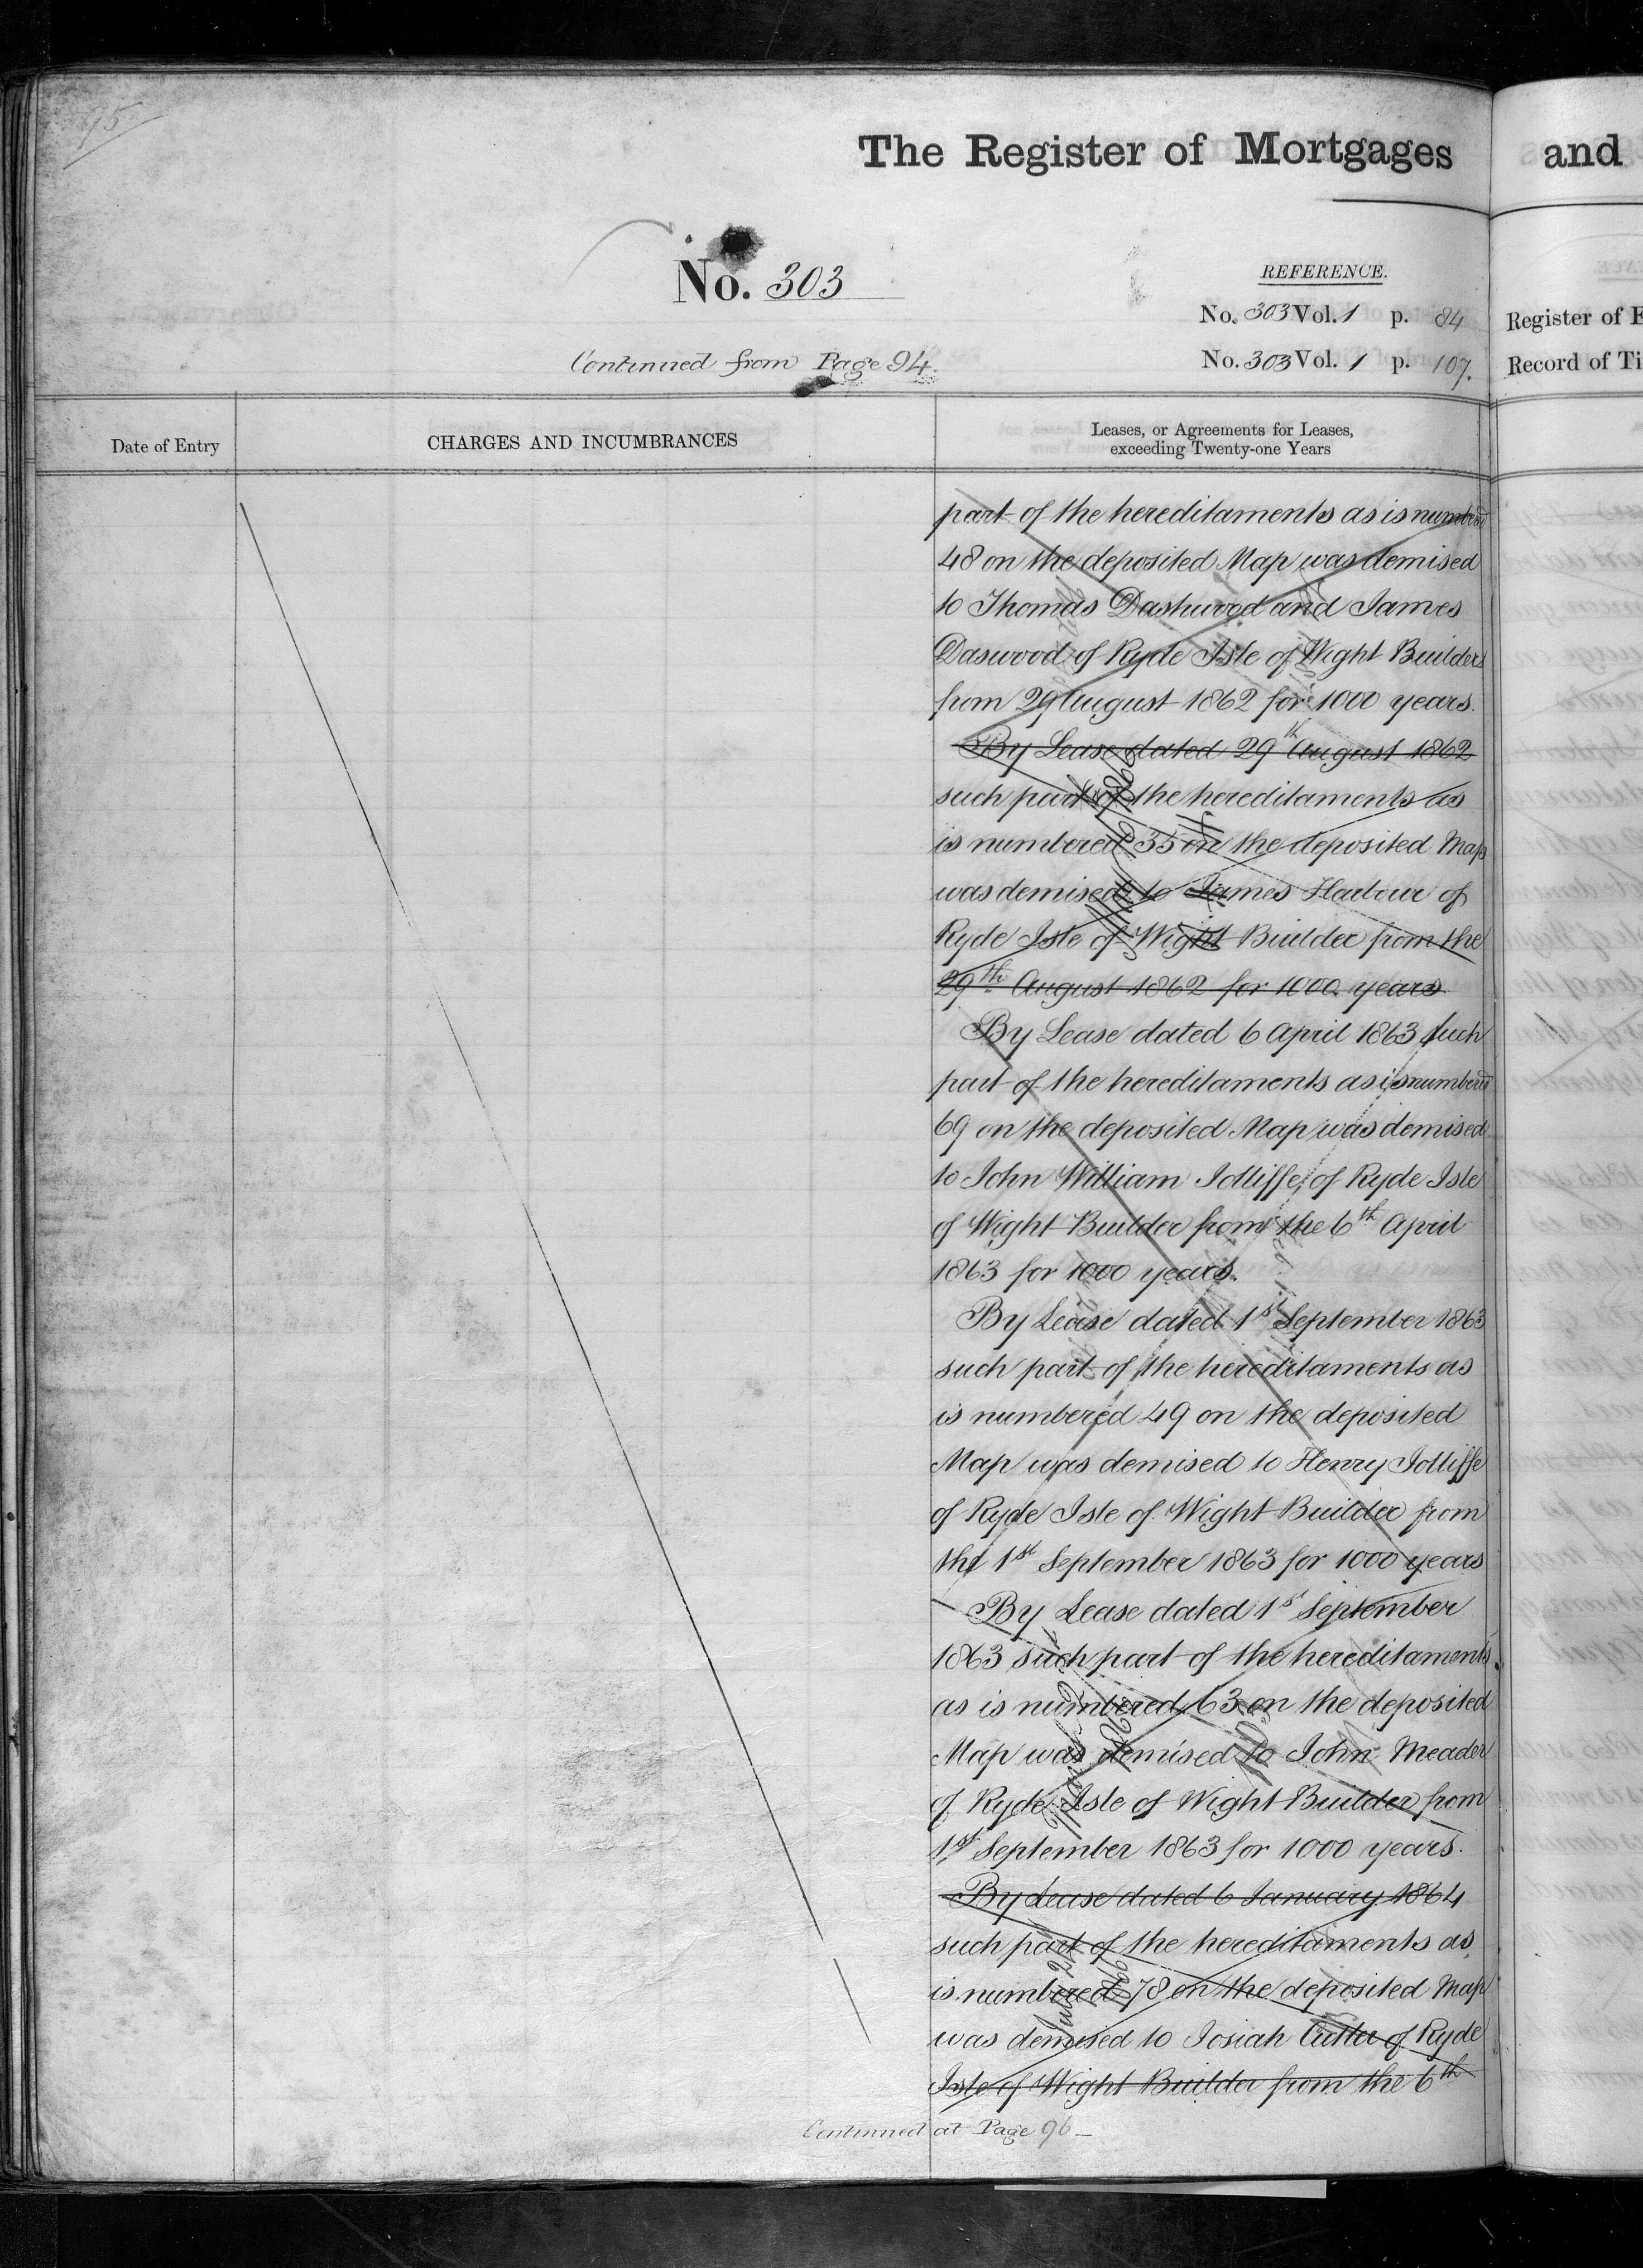 95
The Register of Mortgages and
No. 303
REFERENCE.
No. 303 Vol. 1 p. 84 Register of E
Continued from Page 94.
No. 303 Vol. 1 p. 107. Record of Ti
Date of Entry
CHARGES AND INCUMBRANCES
Leases, or Agreements for Leases,
exceeding Twenty-one Years
part of the hereditaments as is numbered
48 on the deposited Map was demised
to Thomas Dashwood and James
Daswood of Ryde Isle of Wight Builders
from 29 August 1862 for 1000 years.
By Lease dated 29th August 1862
such part of the hereditaments as
is numbered 35 on the deposited Map
was demised to James Harbour of
Ryde Isle of Wight Builder from the
29th August 1862 for 1000 years
By Lease dated 6 April 1863 such
part of the hereditaments as is numbered
69 on the deposited Map was demised
to John William Jolliffe of Ryde Isle
of Wight Builder from the 6th April
1863 for 1000 years.
By Lease dated 1st September 1863
such part of the hereditaments as
is numbered 49 on the deposited
Map was demised to Henry Jolliffe
of Ryde Isle of Wight Builder from
the 1st September 1863 for 1000 years
By Lease dated 1st September
1863 such part of the hereditaments
as is numbered 63 on the deposited
Map was demised to John Meader
of Ryde Isle of Wight Builder from
1st September 1863 for 1000 years.
By Lease dated 6 January 1864
such part of the hereditaments as
is numbered 78 on the deposited Map
was demised to Josiah Cutler of Ryde
Isle of Wight Builder from the 6th
Continued at Page 96